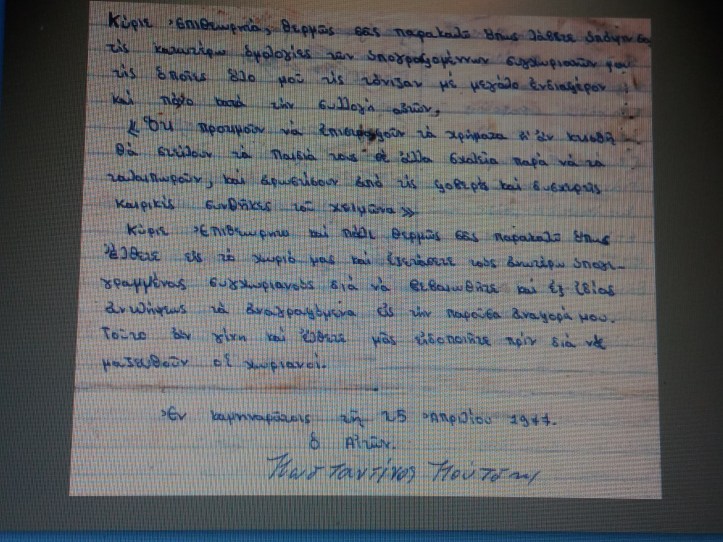 Κύριε Ἐπιθεωρητά, θερμῶς σᾶς παρακαλῶ ὅπως λάβετε ὑπόψη σας
τίς κατωτέρω ὁμολογίες τῶν ὑπογραφομένων συγχωριανῶν μου
τίς ὁποῖες ὅλο μοῦ τίς τόνιζαν μέ μεγάλο ἐνδιαφέρον
καί πόθο κατά τήν συλλογή αὐτῶν,
«Ὅτι προτιμοῦν νά τά χρήματα
θά στείλουν τά παιδιά τους σέ ἄλλα σχολεῖα παρά νά τά
ταλαιπωροῦν, καί ἀρρωστήσουν ἀπό τίς καί δυσχερεῖς
καιρικές συνθῆκες τοῦ χειμῶνα»
Κύριε Ἐπιθεωρητά καί πάλι θερμῶς σᾶς παρακαλῶ ὅπως
ἔλθετε εἰς τό χωριό μας καί ἐξετάσετε τούς ἀνωτέρω ὑπογε-
γραμμένους συγχωριανούς διά νά βεβαιωθῆτε καί ἐξ ἰδίας
ἀντιλήψεως τά ἀναγραφόμενα εἰς τήν παροῦσα ἀναφορά μου.
Τοῦτο ἐάν γίνη καί ἔλθετε μᾶς εἰδοποιῆτε πρίν διά νά
μαζευθοῦν οἱ χωριανοί.
Ἐν τῇ 25 Ἀπριλίου 1977.
ὁ Αἰτῶν.
Κωσταντίνος